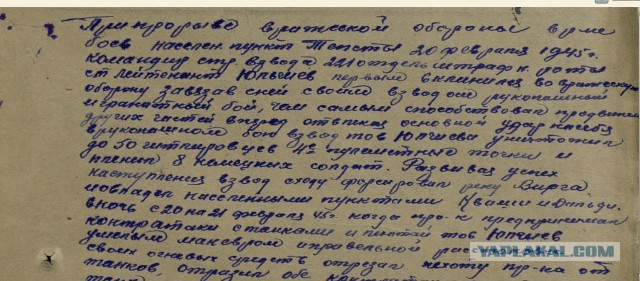 При прорыве вражеской обороны в р-не
боев населен. пункт 20 февраля 1945 г.
командир стр. взвода 221 отдельн. штрафн. роты
ст. лейтенант Юлчиев первым вклинился во вражескую
оборону завязав с ней своим взводом рукопашный
и гранатный бой, чем самым способствовал продвижен
других частей вперед отвлекая основной удар на себя
в рукопашном бою взвод тов Юлчиева уничтожил
до 50 гитлеровцев 4е пулеметные точки и
пленил 8 немецких солдат. Развивая успех
наступления взвод сходу форсировал реку
и овладел населенными пунктами и
в ночь с 20 на 21 февраля 45 г. когда пр-к предпринимал
контратаки с танками и пехотой тов Юлчиев
умелым маневром и правильной
своих огневых средств отрезал пехоту пр-ка от
танков, отразил обе
YAPLAKAL.COM